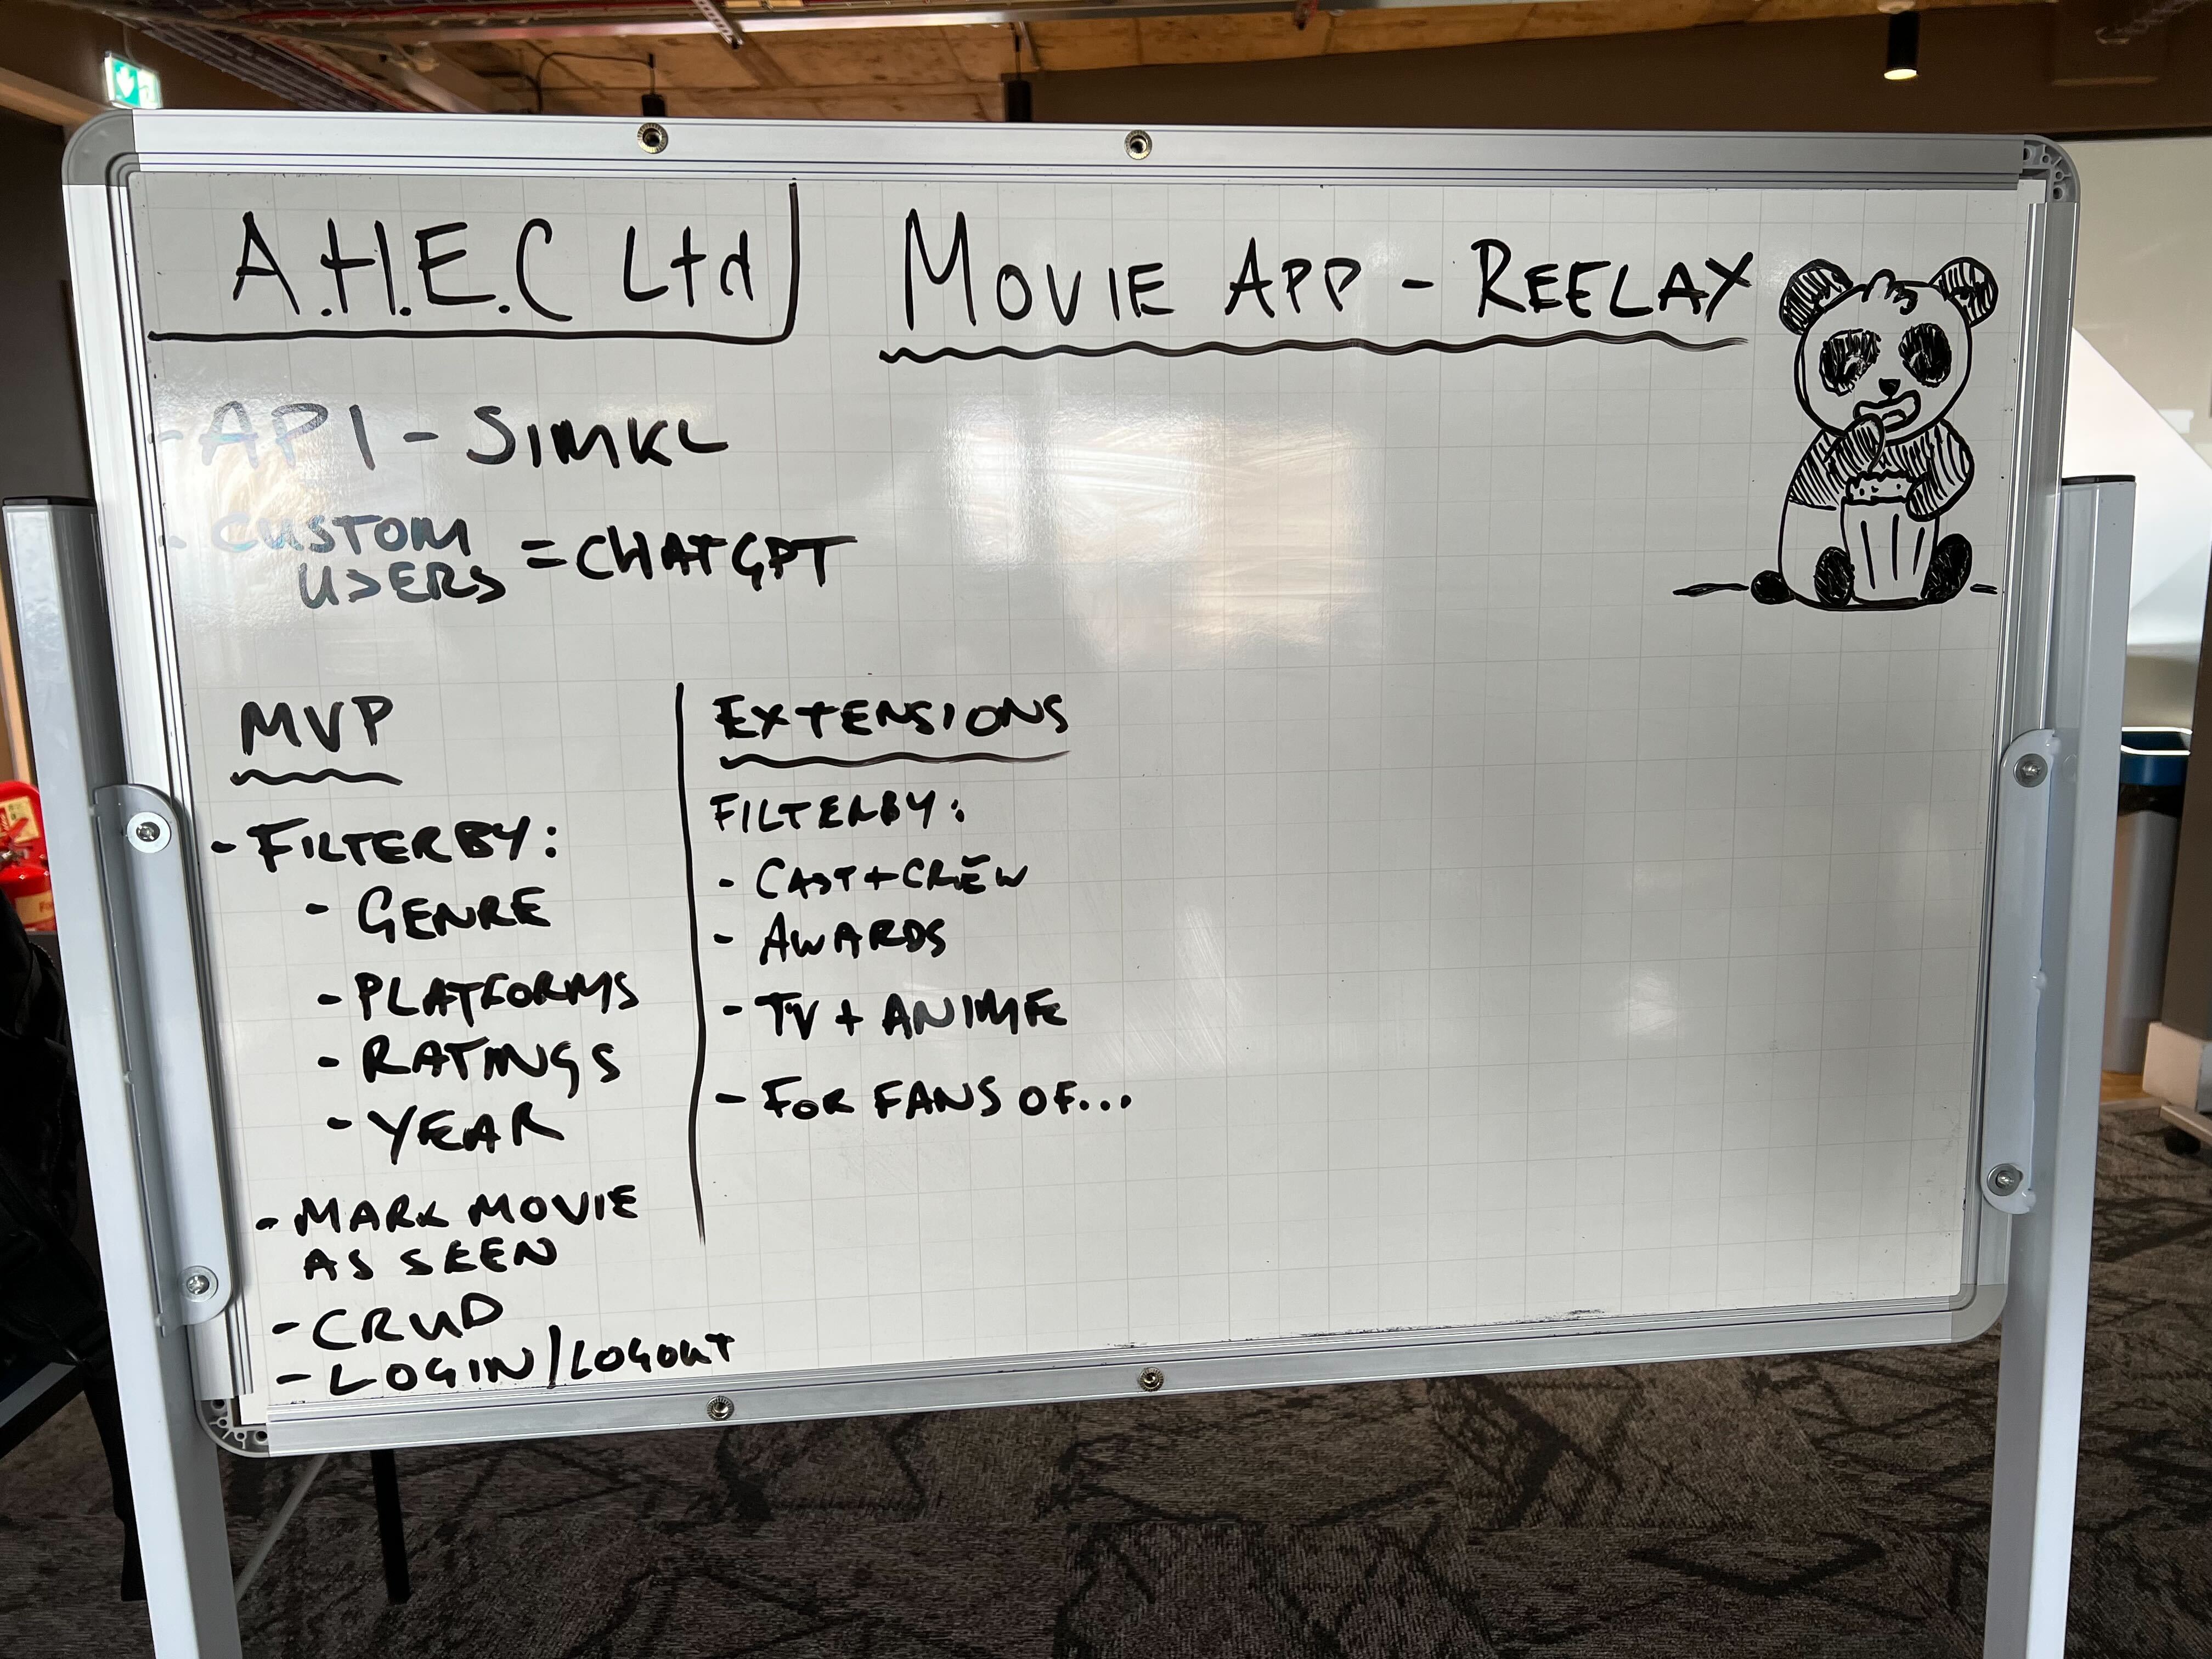 A.H.E.C Ltd
MOVIE APP - REELAX
- API - SIMKL
- CUSTOM USERS = CHATGPT
MVP
- FILTER BY:
- GENRE
- PLATFORMS
- RATINGS
- YEAR
- MARK MOVIE
AS SEEN
- CRUD
- LOGIN/LOGOUT
EXTENSIONS
FILTER BY:
- CAST + CREW
- AWARDS
- TV + ANIME
- FOR FANS OF...